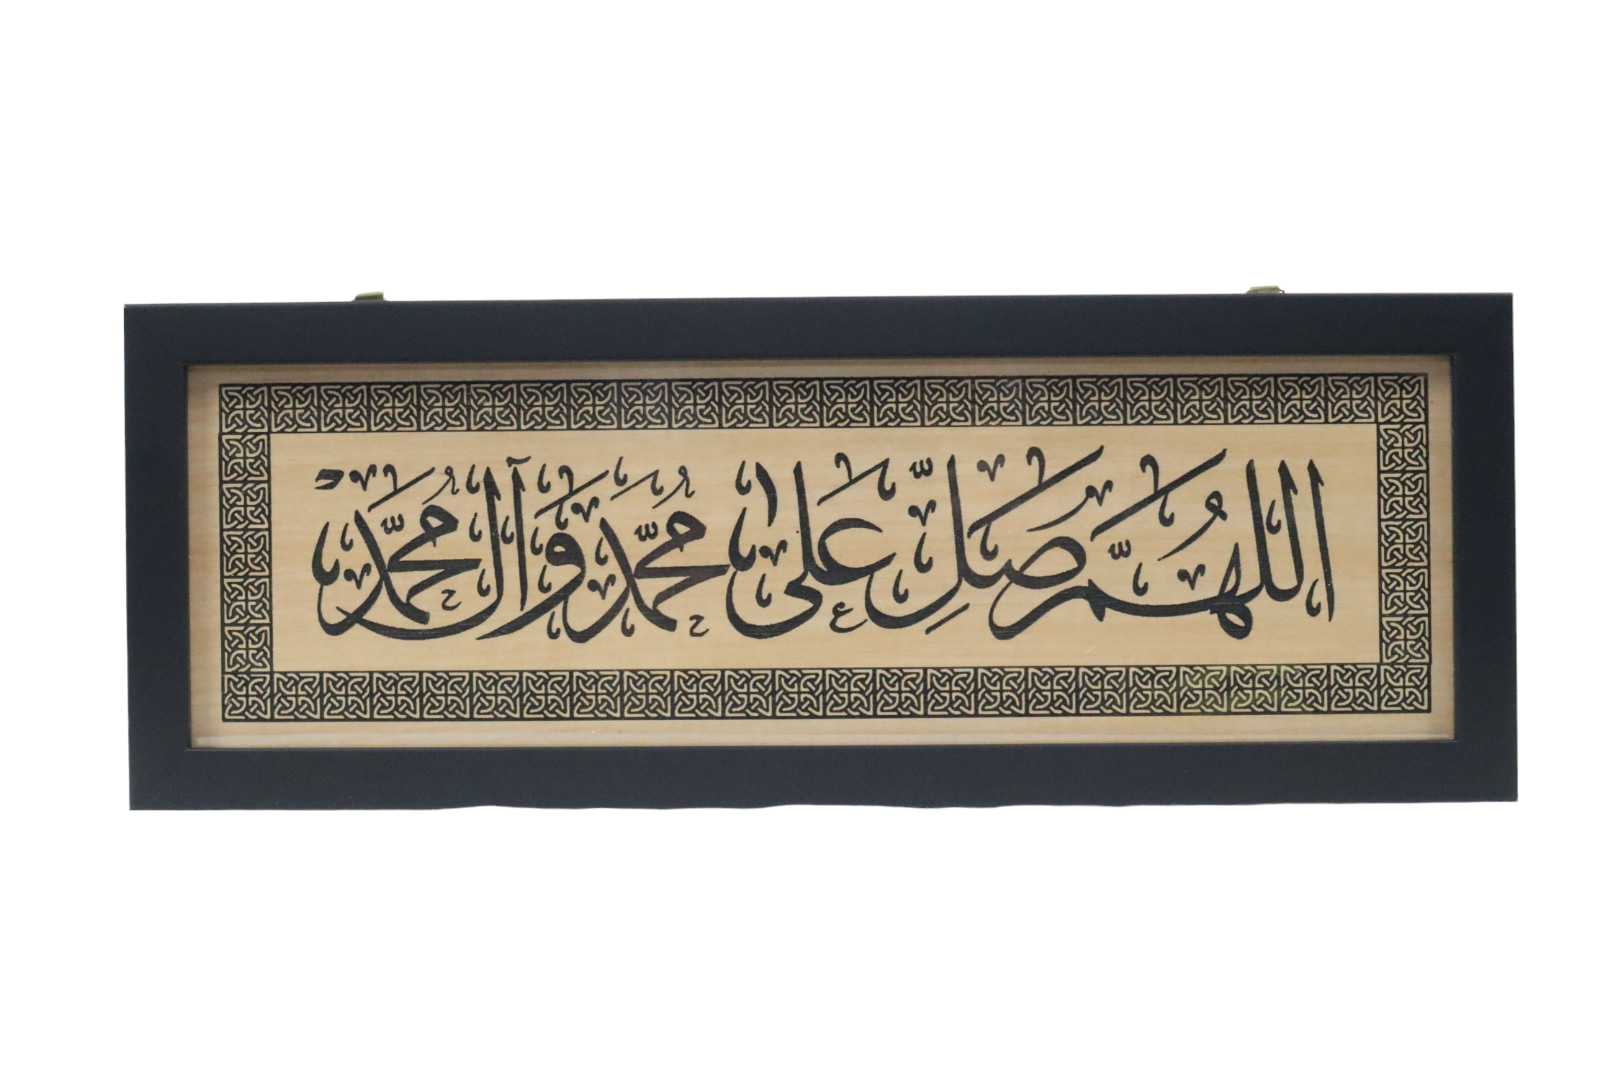 اللهُمَّ صَلِّ عَلى مُحَمَّد وَآل مُحَمَّد